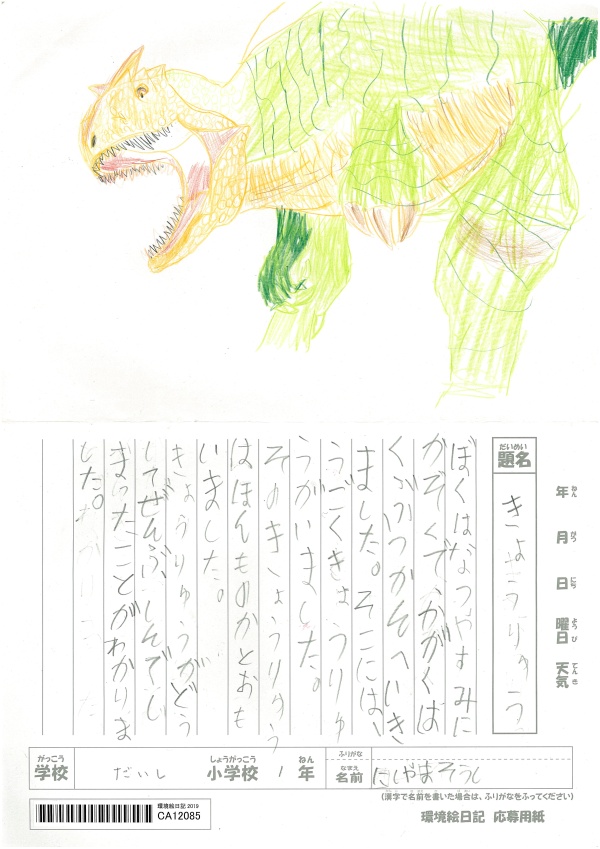 だいめい
題名
きょうりゅう
ねん
年
がつ
月
にち
日
ようび
曜日
てんき
天気
ぼくはなつやすみに
かぞくで、かがくは
くぶつかんへいき
ました。そこには、
うごくきょうりゅ
うがいました。
そのきょうりゅう
はほんものかとおも
いました。
きょうりゅうがどう
してぜんぶしんでし
まったことがわかりま
した。
がっこう
学校
だいし
しょうがっこう
小学校
1
ねん
年
ふりがな
なまえ
名前
にしやまそうし
(漢字で名前を書いた場合は、ふりがなをふってください)
環境絵日記 2019
CA12085
環境絵日記 応募用紙